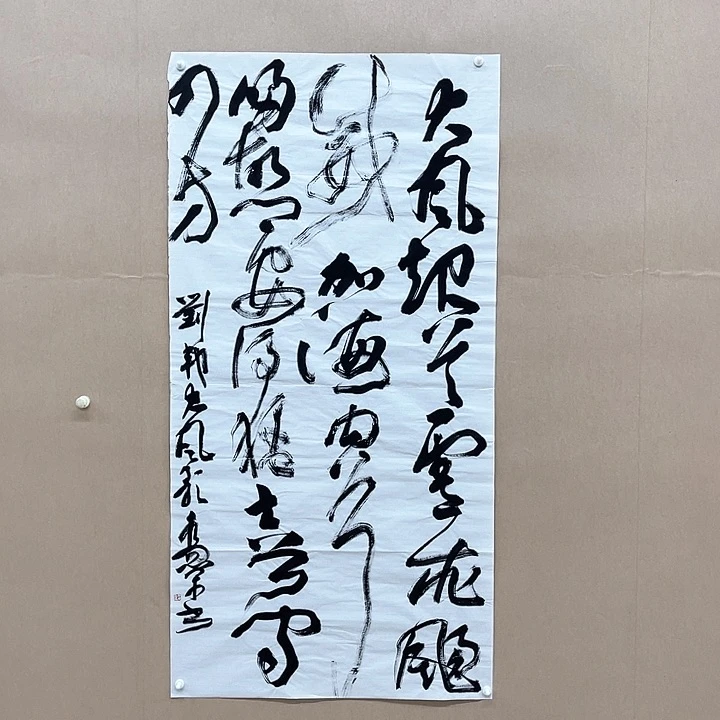 大風起兮雲飛颺
威加海内兮
歸故鄉安得猛士兮守
四方
劉邦大風歌 書